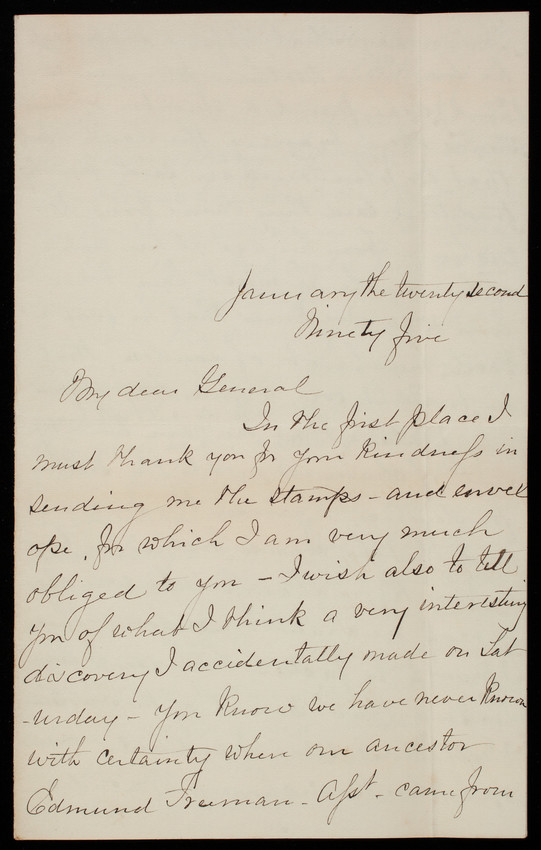 January the twenty second
Ninety five
My dear General
In the first place I
must thank you for your kindness in
sending me the stamps - and envel
ope, for which I am very much
obliged to you - I wish also to tell
you of what I think a very interesting
discovery I accidentally made on Sat
-urday - you know we have never known
with certainty when our ancestor
Edmund Freeman - - came from